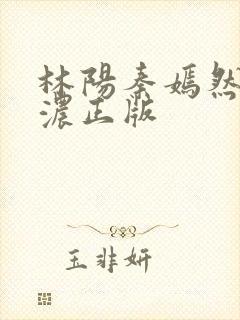 林陽秦嫣然
濃正版
玉非妍